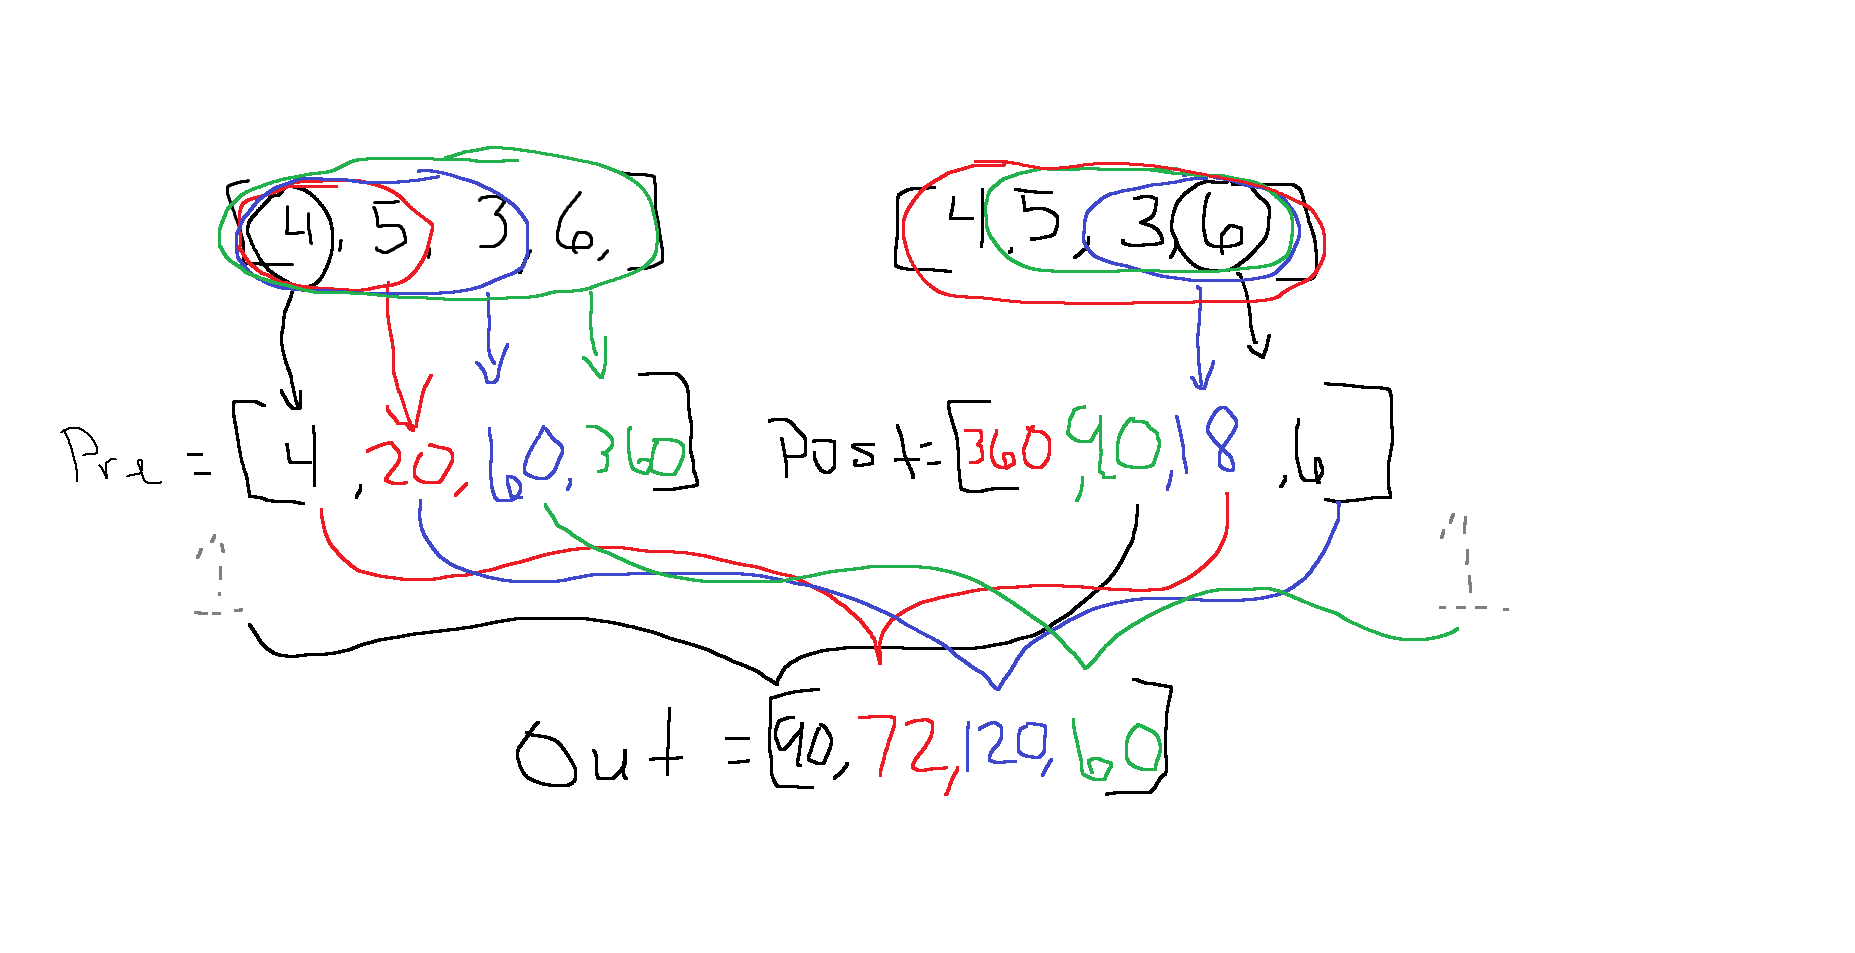 [4, 5, 3, 6,] [4, 5, 3, 6]
Pre = [4, 20, 60, 360] Post = [360, 90, 18, 6]
1 1
Out = [90, 72, 120, 60]